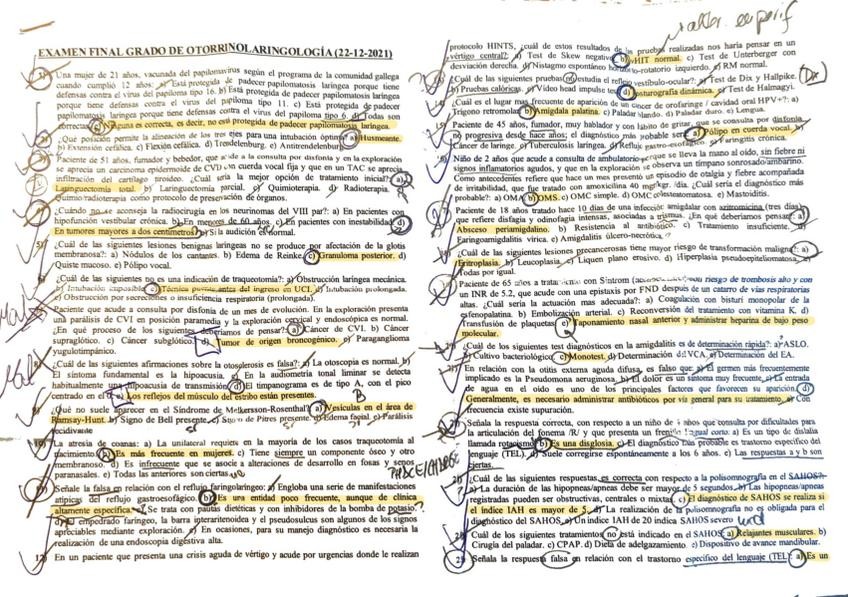 EXAMEN FINAL GRADO DE OTORRINOLARINGOLOGÍA (22-12-2021)
Una mujer de 21 años, vacunada del papilomavirus según el programa de la comunidad gallega
cuando cumplió 12 años: a) Está protegida de padecer papilomatosis laríngea porque tiene
defensas contra el virus del papiloma tipo 16. b) Está protegida de padecer papilomatosis laríngea
porque tiene defensas contra el virus del papiloma tipo 11. c) Está protegida de padecer
papilomatosis laríngea porque tiene defensas contra el virus del papiloma tipo 6. d) Todas son
correctas. e) Ninguna es correcta, es decir, no está protegida de padecer papilomatosis laríngea.
¿Qué posición permite la alineación de los tres ejes para una intubación óptima? a) Husmeante.
b) Extensión cefálica. c) Flexión cefálica. d) Trendelenburg. e) Antitrendelenburg
Paciente de 51 años, fumador y bebedor, que acude a la consulta por disfonía y en la exploración
se aprecia un carcinoma epidermoide de CVD, con cuerda vocal fija y que en un TAC se aprecia
infiltración del cartílago tiroideo. ¿Cuál sería la mejor opción de tratamiento inicial? a)
Laringuectomía total. b) Laringuectomía parcial. c) Quimioterapia. d) Radioterapia.
Quimio/radioterapia como protocolo de preservación de órganos.
¿Cuándo no se aconseja la radiocirugía en los neurinomas del VIII par? a) En pacientes con
hipofunción vestibular crónica. b) En mayores de 60 años. c) En pacientes con inestabilidad. d)
En tumores mayores a dos centímetros. e) Si la audición es normal.
¿Cuál de las siguientes lesiones benignas laríngeas no se produce por afectación de la glotis
membranosa?: a) Nódulos de los cantantes. b) Edema de Reinke. c) Granuloma posterior. d)
Quiste mucoso. e) Pólipo vocal.
¿Cuál de las siguientes no es una indicación de traqueotomía?: a) Obstrucción laríngea mecánica.
b) Intubación imposible. c) Técnica puente antes del ingreso en UCI. d) Intubación prolongada.
e) Obstrucción por secreciones o insuficiencia respiratoria (prolongada).
Paciente que acude a consulta por disfonía de un mes de evolución. En la exploración presenta
una parálisis de CVI en posición paramedia y la exploración cervical y endoscópica es normal.
¿En qué proceso de los siguientes deberíamos de pensar? a) Cáncer de CVI. b) Cáncer
supraglótico. c) Cáncer subglótico. d) Tumor de origen broncogénico. e) Paraganglioma
yugulotimpánico.
¿Cuál de las siguientes afirmaciones sobre la otosclerosis es falsa?: a) La otoscopia es normal. b)
El síntoma fundamental es la hipoacusia. c) En la audiometría tonal liminar se detecta
habitualmente una hipoacusia de transmisión. d) El timpanograma es de tipo A, con el pico
centrado en el 0. e) Los reflejos del músculo del estribo están presentes.
¿Qué no suele aparecer en el Síndrome de Melkersson-Rosenthal? a) Vesículas en el área de
Ramsay-Hunt. b) Signo de Bell presente. c) Signo de Pitres presente. d) Edema facial. e) Parálisis
recidivante
La atresia de coanas: a) La unilateral requiere en la mayoría de los casos traqueotomía al
nacimiento. b) Es más frecuente en mujeres. c) Tiene siempre un componente óseo y otro
membranoso. d) Es infrecuente que se asocie a alteraciones de desarrollo en fosas y senos
paranasales. e) Todas las anteriores son ciertas
Señale la falsa en relación con el reflujo faringolaríngeo: a) Engloba una serie de manifestaciones
atípicas del reflujo gastroesofágico. b) Es una entidad poco frecuente, aunque de clínica
altamente específica. c) Se trata con pautas dietéticas y con inhibidores de la bomba de potasio.
d) El empedrado faríngeo, la barra interaritenoidea y el pseudosulcus son algunos de los signos
apreciables mediante exploración. e) En ocasiones, para su manejo diagnóstico es necesaria la
realización de una endoscopia digestiva alta.
12 En un paciente que presenta una crisis aguda de vértigo y acude por urgencias donde le realizan
protocolo HINTS, ¿cuál de estos resultados de las pruebas realizadas nos haría pensar en un
vértigo central?: a) Test de Skew negativo. b) vHIT normal. c) Test de Unterberger con
desviación derecha. d) Nistagmo espontáneo horizonto-rotatorio izquierdo. e) RM normal.
¿Cuál de las siguientes pruebas no estudia el reflejo vestíbulo-ocular?: a) Test de Dix y Hallpike.
b) Pruebas calóricas. c) Vídeo head impulse test. d) Posturografía dinámica. e) Test de Halmagyi.
¿Cuál es el lugar más frecuente de aparición de un cáncer de orofaringe / cavidad oral HPV+?: a)
Trígono retromolar. b) Amígdala palatina. c) Paladar blando. d) Paladar duro. e) Lengua.
Paciente de 45 años, fumador, muy hablador y con hábito de gritar, que se consulta por disfonía
no progresiva desde hace años; el diagnóstico más probable será: a) Pólipo en cuerda vocal. b)
Cáncer de laringe. c) Tuberculosis laríngea. d) Reflujo gastro-esofágico. e) Faringitis crónica.
Niño de 2 años que acude a consulta de ambulatorio porque se lleva la mano al oído, sin fiebre ni
signos inflamatorios agudos, y que en la exploración se observa un tímpano sonrosado/ambarino.
Como antecedentes refiere que hace un mes presentó un episodio de otalgia y fiebre acompañada
de irritabilidad, que fue tratado con amoxicilina 40 mgr/kgr. /día. ¿Cuál sería el diagnóstico más
probable?: a) OMA. b) OMS. c) OMC simple. d) OMC colesteatomatosa. e) Mastoiditis.
Paciente de 18 años tratado hace 10 días de una infección amigdalar con azitromicina (tres días)
que refiere disfagia y odinofagia intensas, asociadas a trismus. ¿En qué deberíamos pensar?: a)
Absceso periamigdalino. b) Resistencia al antibiótico. c) Tratamiento insuficiente. d)
Faringoamigdalitis vírica. e) Amigdalitis úlcero-necrótica.
¿Cuál de las siguientes lesiones precancerosas tiene mayor riesgo de transformación maligna?: a)
Eritroplasia. b) Leucoplasia. c) Liquen plano erosivo. d) Hiperplasia pseudoepiteliomatosa. e)
Todas por igual.
Paciente de 65 años a tratamiento con Sintrom con riesgo de trombosis alto y con
un INR de 5.2, que acude con una epistaxis por FND después de un catarro de vías respiratorias
altas. ¿Cuál sería la actuación más adecuada?: a) Coagulación con bisturí monopolar de la
esfenopalatina. b) Embolización arterial. c) Reconversión del tratamiento con vitamina K. d)
Transfusión de plaquetas. e) Taponamiento nasal anterior y administrar heparina de bajo peso
molecular.
¿Cuál de los siguientes test diagnósticos en la amigdalitis es de determinación rápida?: a) ASLO.
b) Cultivo bacteriológico. c) Monotest. d) Determinación del VCA. e) Determinación del EA.
En relación con la otitis externa aguda difusa, es falso que: a) El germen más frecuentemente
implicado es la Pseudomona aeruginosa. b) El dolor es un síntoma muy frecuente. c) La entrada
de agua en el oído es uno de los principales factores que favorecen su aparición. d)
Generalmente, es necesario administrar antibióticos por vía general para su tratamiento. e) Con
frecuencia existe supuración.
Señala la respuesta correcta, con respecto a un niño de 4 años que consulta por dificultades para
la articulación del fonema /R/ y que presenta un frenillo lingual corto: a) Es un tipo de dislalia
llamada rotacismo. b) Es una disglosia. c) El diagnóstico más probable es trastorno específico del
lenguaje (TEL). d) Suele corregirse espontáneamente a los 6 años. e) Las respuestas a y b son
ciertas.
¿Cuál de las siguientes respuestas, es correcta con respecto a la polisomnografía en el SAHOS?:
a) La duración de las hipopneas/apneas debe ser mayor de 5 segundos. b) Las hipopneas/apneas
registradas pueden ser obstructivas, centrales o mixtas. c) El diagnóstico de SAHOS se realiza si
el índice IAH es mayor de 5. d) La realización de la polisomnografía no es obligada para el
diagnóstico del SAHOS. e) Un índice IAH de 20 indica SAHOS severo
¿Cuál de los siguientes tratamientos no está indicado en el SAHOS: a) Relajantes musculares. b)
Cirugía del paladar. c) CPAP. d) Dieta de adelgazamiento. e) Dispositivos de avance mandibular.
Señala la respuesta falsa en relación con el trastorno específico del lenguaje (TEL): a) Es un